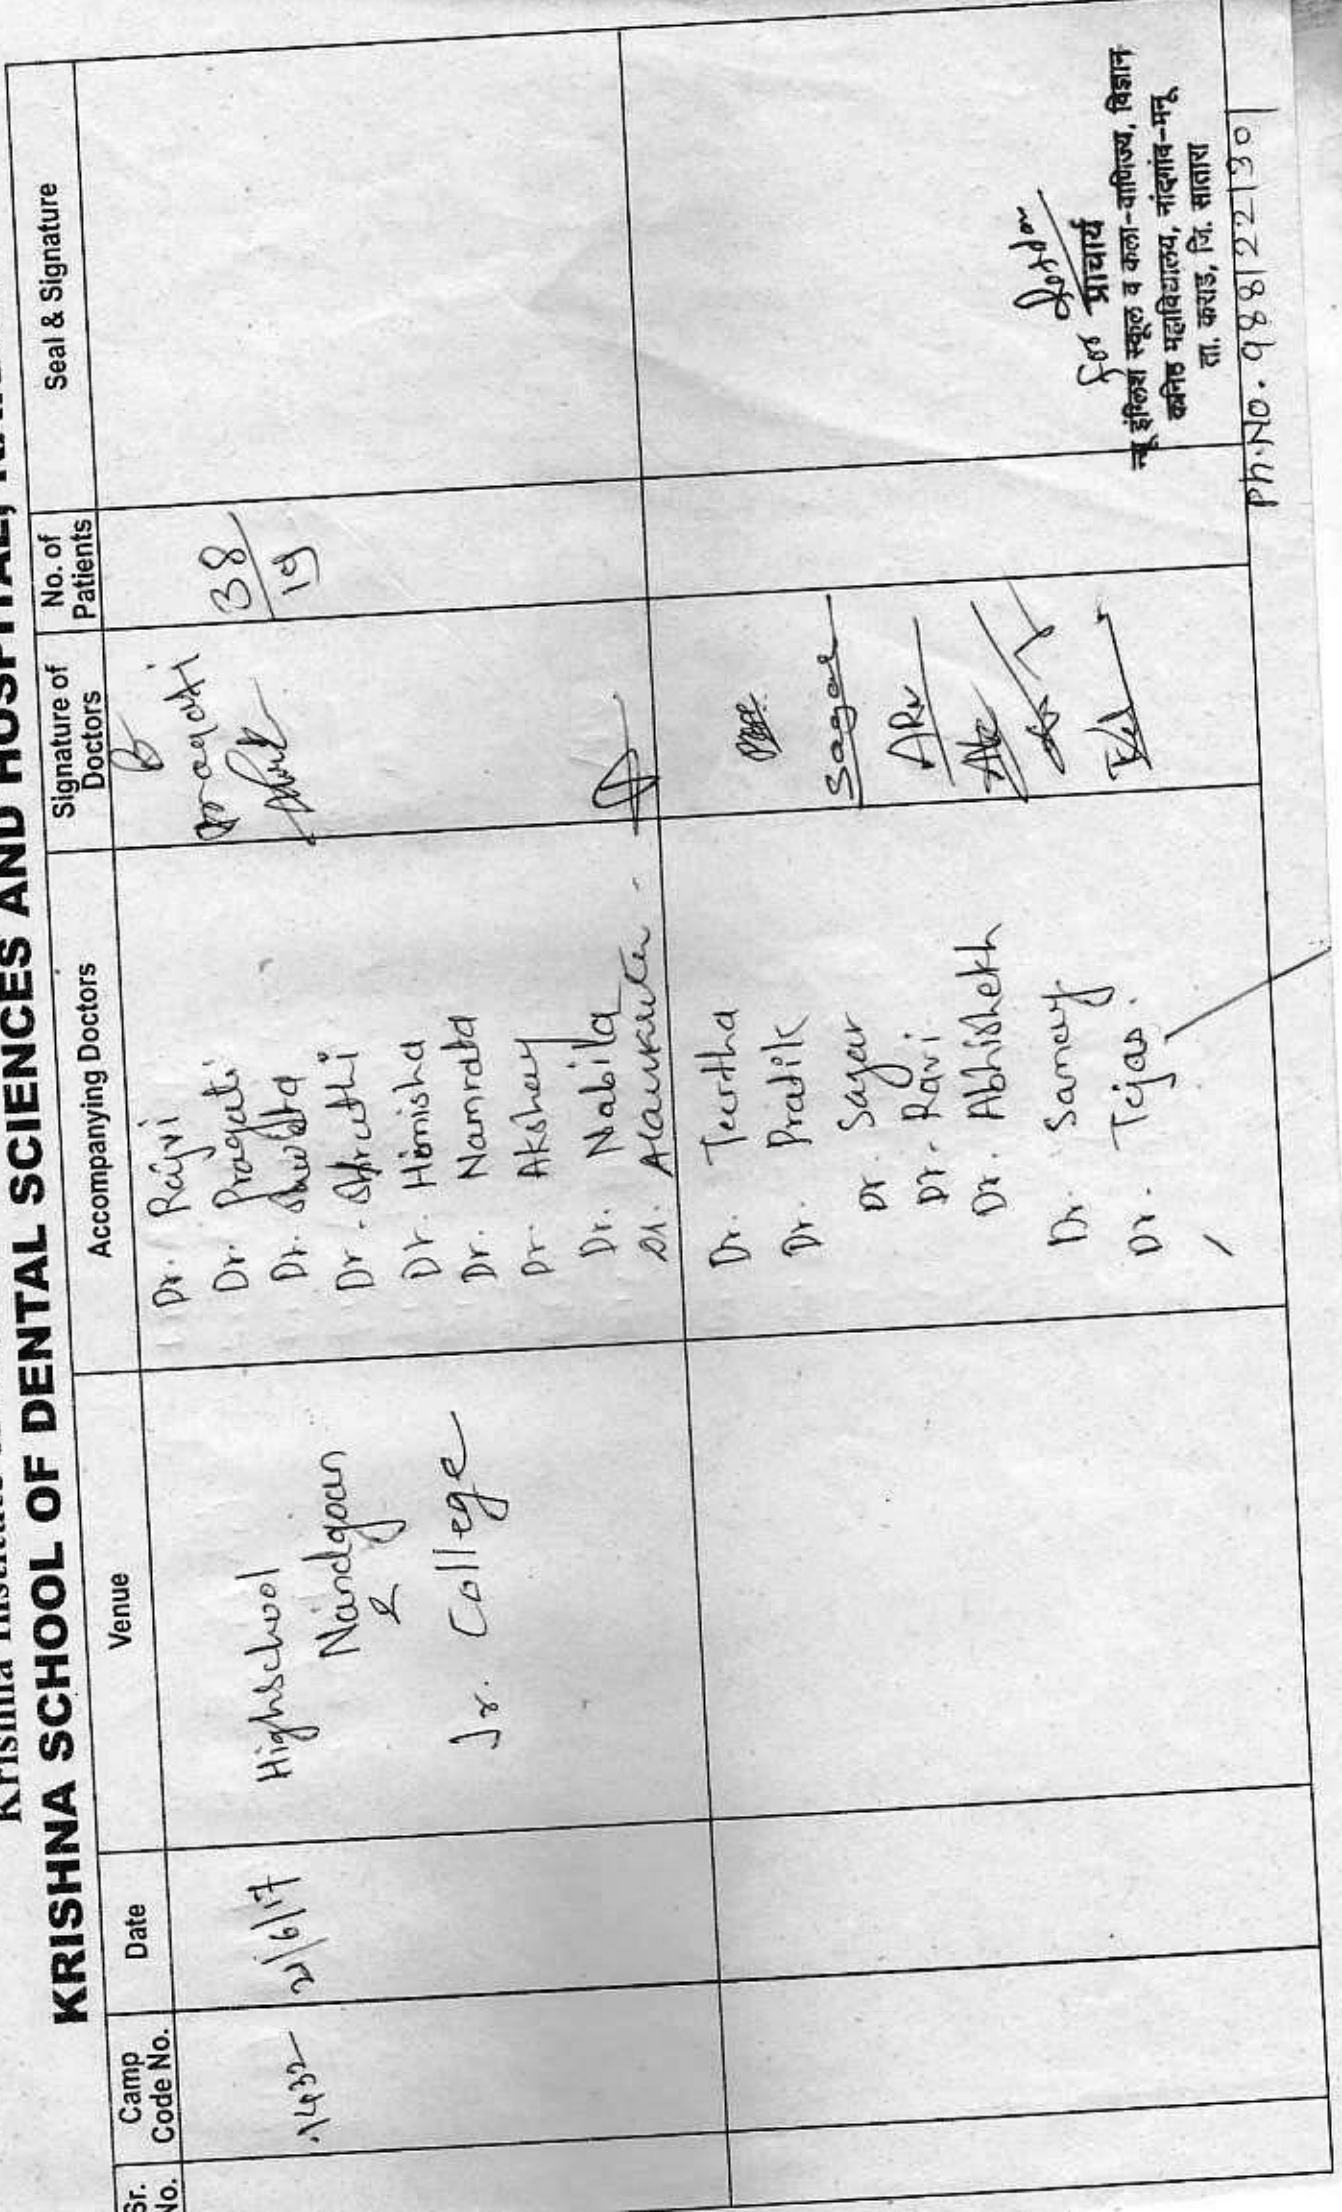 KRISHNA SCHOOL OF DENTAL SCIENCES AND HOSPITAL,
Sr. No.
Camp Code No.
Date
Venue
Accompanying Doctors
Signature of Doctors
No. of Patients
Seal & Signature
1432
21/6/17
Highschool
Nandgaon
&
Jr. College
Dr. Rajvi
Dr. Pragati
Dr. Shweta
Dr. Shruthi
Dr. Honisha
Dr. Namrata
Dr. Akshay
Dr. Nabila
Dr. Alankruta -
Pragati
38/19
Dr. Teertha
Dr. Pratik
Dr. Sagar
Dr. Ravi
Dr. Abhishekh
Dr. Samay
Dr. Tejas.
Sagar
For प्राचार्य
न्यू इंग्लिश स्कूल व कला-वाणिज्य, विज्ञान
कनिष्ठ महाविद्यालय, नांदगांव-मनू,
ता. कराड, जि. सातारा
Ph.NO. 9881822130